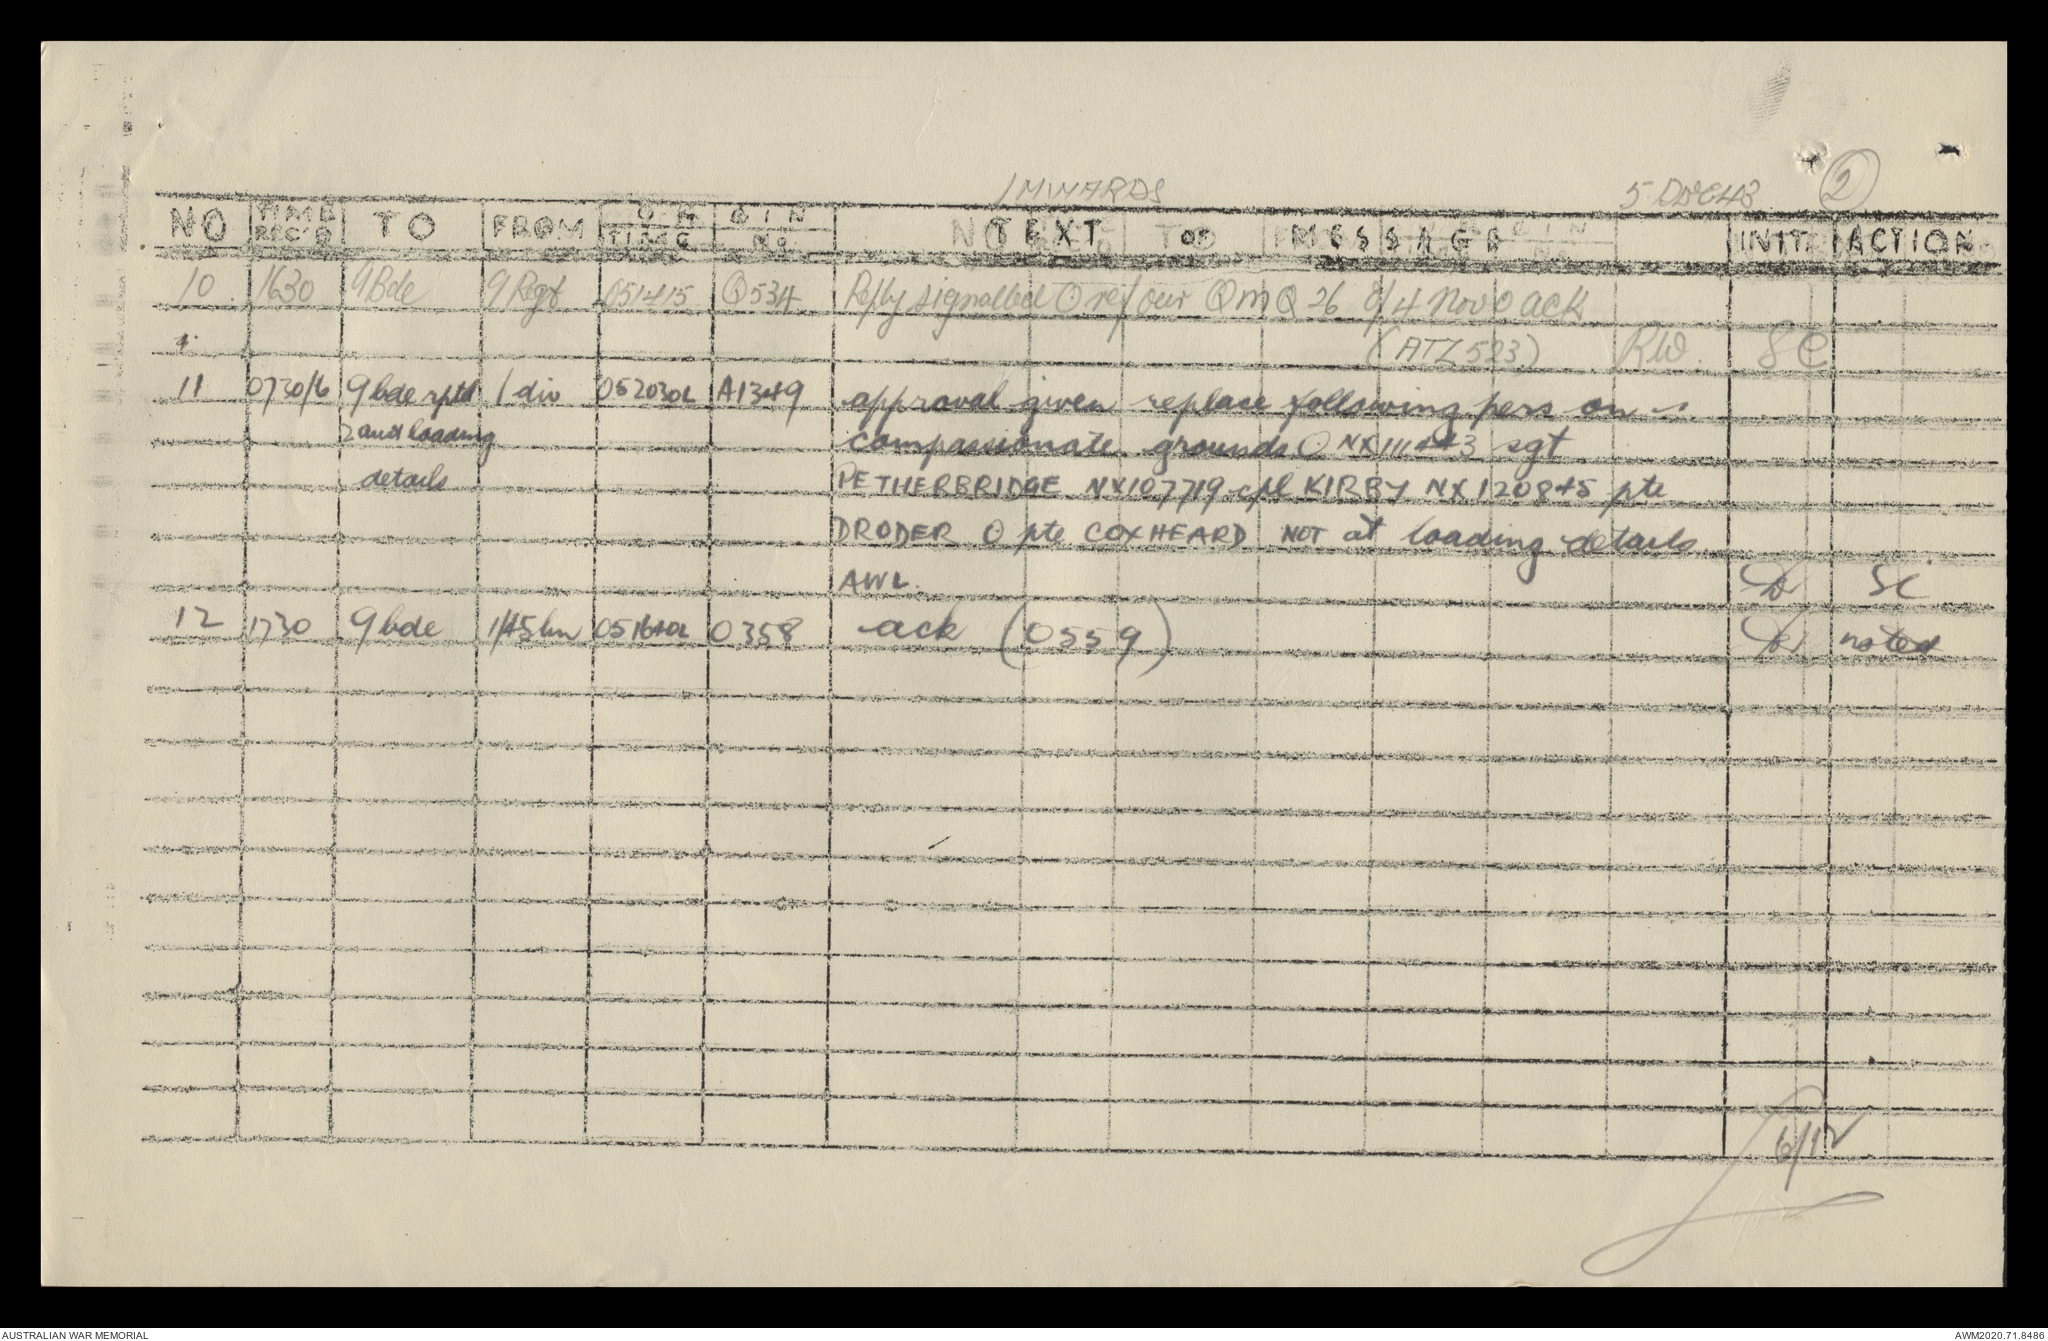 INWARDS 5 DEC 43 2
NO TIME REC'D TO FROM ORIGIN TIME No TEXT OF MESSAGE INIT ACTION
10 1630 9 Bde 9 Regt 051415 Q534 Reply signalled O ref our QMQ 26 of 4 Nov O ack
(ATZ 523) RW. SC
11 0730/6 9 bde rptd 1 div 052030L A1349 approval given replace following pers on
2 aust loading compassionate grounds O NX111443 sgt
details PETHERBRIDGE NX107719 cpl KIRBY NX120845 pte
DRODER O pte COXHEARD NOT at loading details
AWL. SC
12 1730 9 bde 1/45 bn 051640L O358 ack (O559) noted
6/12
AUSTRALIAN WAR MEMORIAL AWM2020.71.8486